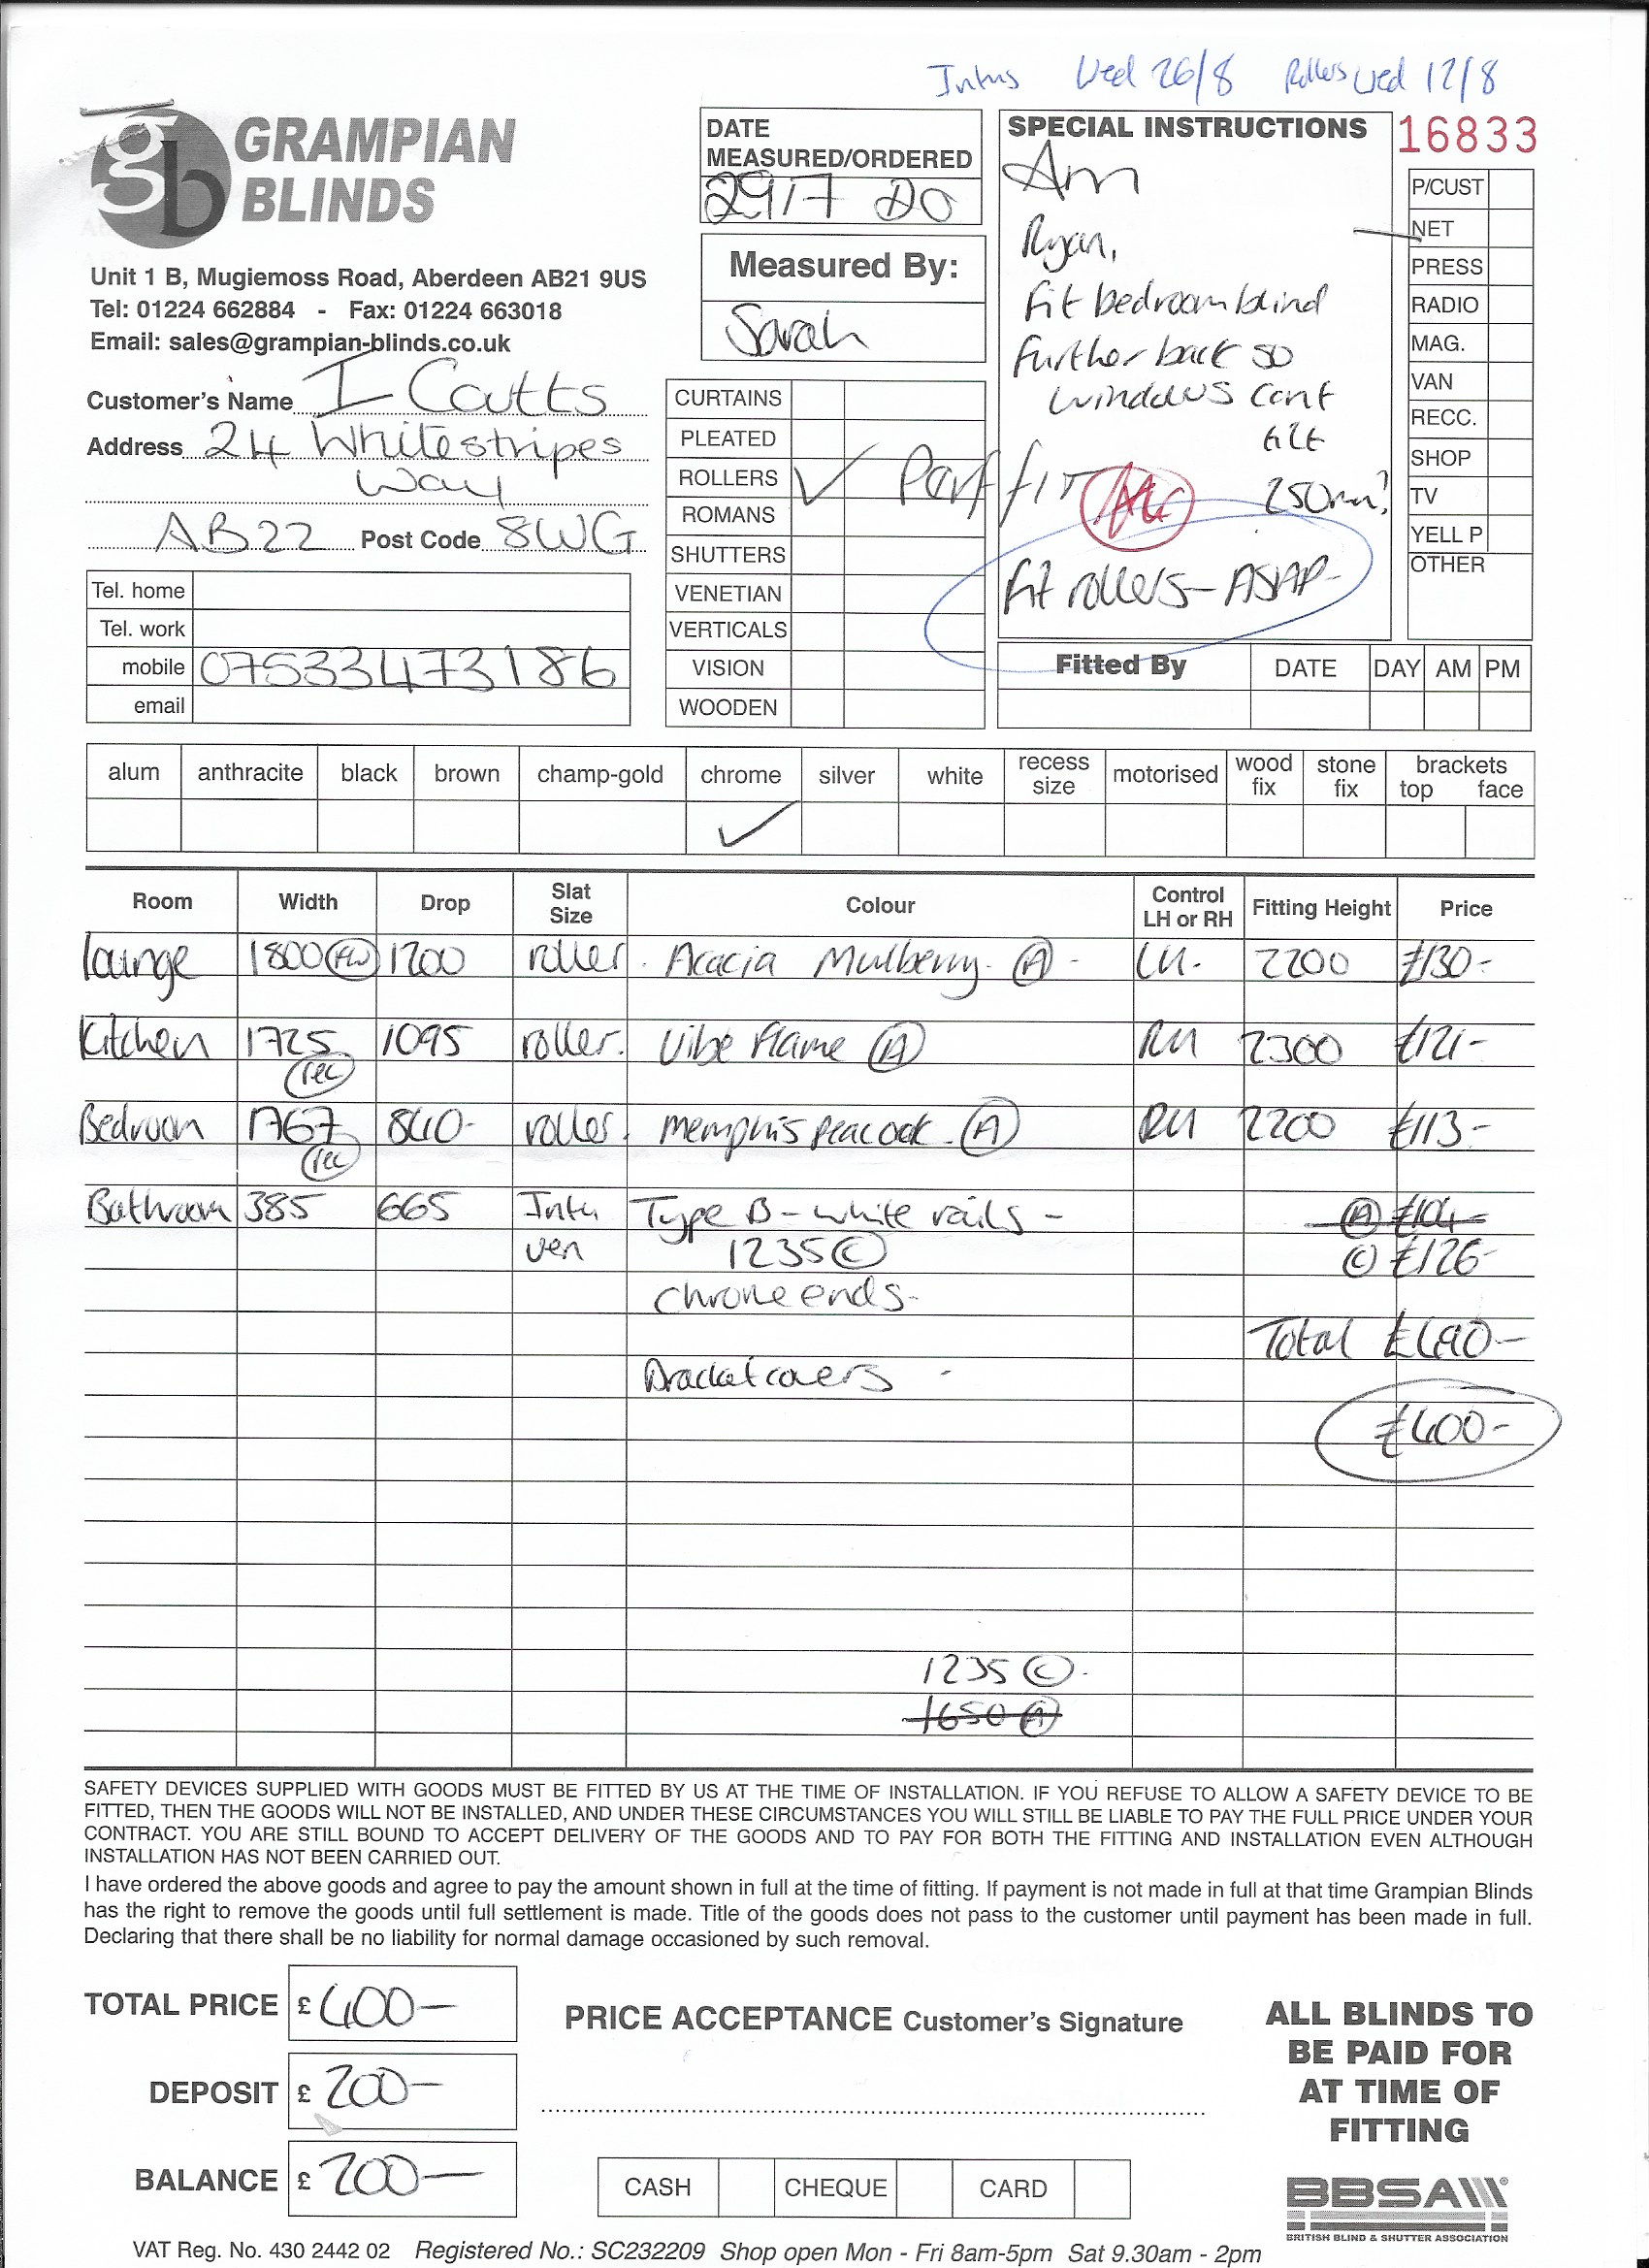 Intus Wed 26/8 Rollers Wed 12/8
gb GRAMPIAN BLINDS
Unit 1 B, Mugiemoss Road, Aberdeen AB21 9US
Tel: 01224 662884 - Fax: 01224 663018
Email: sales@grampian-blinds.co.uk
Customer's Name I Coutts
Address 24 Whitestripes
Way
AB22 Post Code 8WG
Tel. home
Tel. work
mobile 07533473186
email
DATE
MEASURED/ORDERED
29/7 DO
Measured By:
Sarah
CURTAINS
PLEATED
ROLLERS ✓ Part fit
ROMANS
SHUTTERS
VENETIAN
VERTICALS
VISION
WOODEN
SPECIAL INSTRUCTIONS
Am
Ryan,
Fit bedroom blind
further back so
windows cant
tilt
250mm?
fit rollers - ASAP -
16833
P/CUST
NET
PRESS
RADIO
MAG.
VAN
RECC.
SHOP
TV
YELL P
OTHER
Fitted By DATE DAY AM PM
alum anthracite black brown champ-gold chrome silver white recess size motorised wood fix stone fix brackets top face
✓
Room Width Drop Slat Size Colour Control LH or RH Fitting Height Price
Lounge 1800 1200 roller. Acacia Mulberry. A - LH. 2200 £130-
Kitchen 1725 rec 1095 roller. Vibe Flame A RH 2300 £121-
Bedroom 1767 rec 840- roller. Memphis Peacock - A RH 2200 £113-
Bathroom 385 665 Intu Type B - white rails - A £104-
ven 1235 C C £126-
chrome ends-
Total £490-
Bracket covers -
£400-
1235 C.
1650 A
SAFETY DEVICES SUPPLIED WITH GOODS MUST BE FITTED BY US AT THE TIME OF INSTALLATION. IF YOU REFUSE TO ALLOW A SAFETY DEVICE TO BE
FITTED, THEN THE GOODS WILL NOT BE INSTALLED, AND UNDER THESE CIRCUMSTANCES YOU WILL STILL BE LIABLE TO PAY THE FULL PRICE UNDER YOUR
CONTRACT. YOU ARE STILL BOUND TO ACCEPT DELIVERY OF THE GOODS AND TO PAY FOR BOTH THE FITTING AND INSTALLATION EVEN ALTHOUGH
INSTALLATION HAS NOT BEEN CARRIED OUT.
I have ordered the above goods and agree to pay the amount shown in full at the time of fitting. If payment is not made in full at that time Grampian Blinds
has the right to remove the goods until full settlement is made. Title of the goods does not pass to the customer until payment has been made in full.
Declaring that there shall be no liability for normal damage occasioned by such removal.
TOTAL PRICE £ 400-
DEPOSIT £ 200-
BALANCE £ 200-
PRICE ACCEPTANCE Customer's Signature
CASH CHEQUE CARD
ALL BLINDS TO
BE PAID FOR
AT TIME OF
FITTING
BBSA
BRITISH BLIND & SHUTTER ASSOCIATION
VAT Reg. No. 430 2442 02 Registered No.: SC232209 Shop open Mon - Fri 8am-5pm Sat 9.30am - 2pm